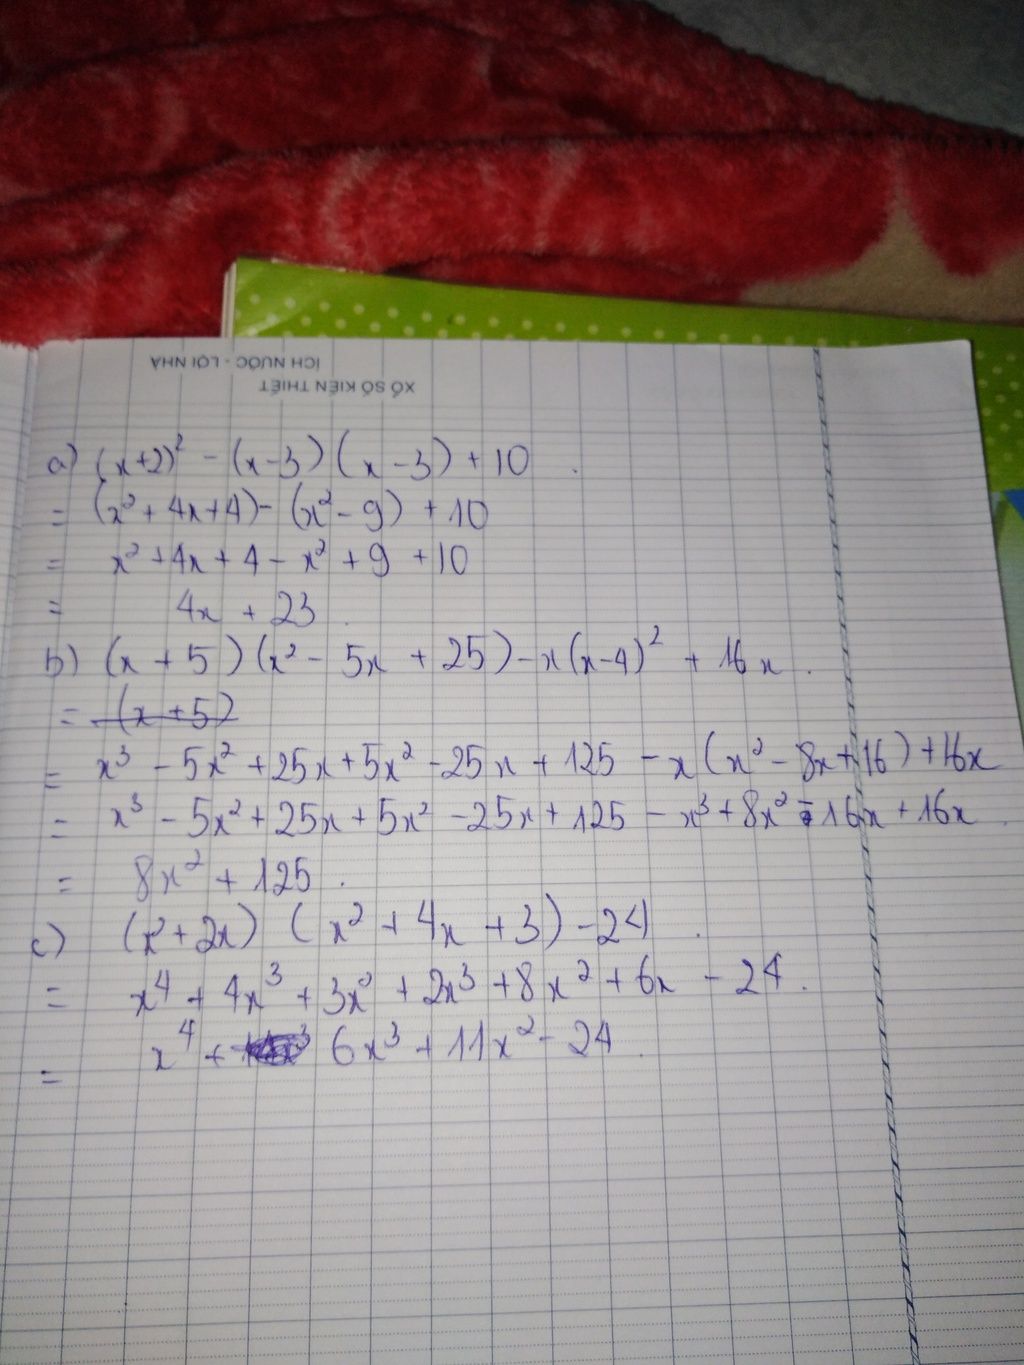 ÍCH NƯỚC - LỢI NHÀ
XỔ SỐ KIẾN THIẾT
a) (x+2)² - (x-3)(x-3) + 10.
= (x² + 4x+4) - (x² - 9) + 10
= x² + 4x + 4 - x² + 9 + 10
= 4x + 23.
b) (x + 5)(x² - 5x + 25) - x(x-4)² + 16x.
= (x+5)
= x³ - 5x² + 25x + 5x² - 25x + 125 - x(x² - 8x + 16) + 16x
= x³ - 5x² + 25x + 5x² - 25x + 125 - x³ + 8x² - 16x + 16x.
= 8x² + 125.
c) (x² + 2x) (x² + 4x + 3) - 24.
= x⁴ + 4x³ + 3x² + 2x³ + 8x² + 6x - 24.
= x⁴ + 6x³ + 11x² - 24.